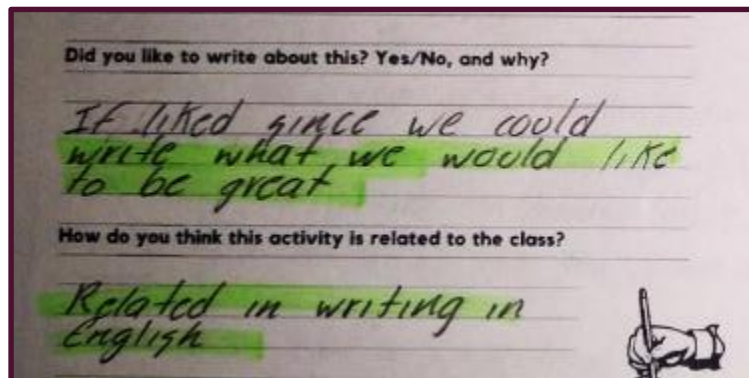 Did you like to write about this? Yes/No, and why?
If liked since we could
write what we would like
to be great
How do you think this activity is related to the class?
Related in writing in
English